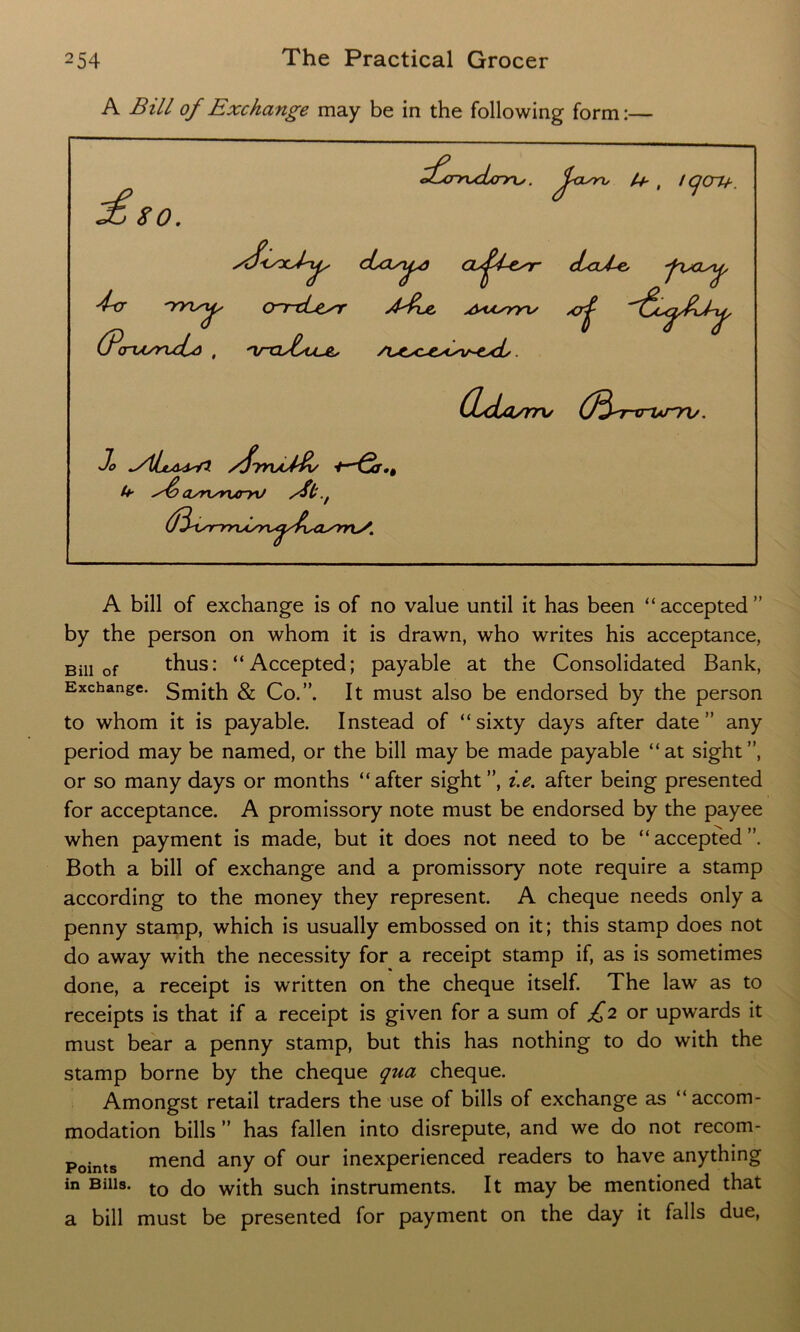 254 The Practical Grocer
A Bill of Exchange may be in the following form:—
London. Jan 4, 1904.
£80.
Sixty days after date pay
to my order the sum of Eighty
Pounds, value received.
Adam Brown.
To Messrs Smith & Co.,
4 Hanson St.,
Birmingham.
A bill of exchange is of no value until it has been “accepted”
by the person on whom it is drawn, who writes his acceptance,
Bill of thus: “Accepted; payable at the Consolidated Bank,
Exchange. Smith & Co.”. It must also be endorsed by the person
to whom it is payable. Instead of “sixty days after date” any
period may be named, or the bill may be made payable “at sight”,
or so many days or months “after sight”, i.e. after being presented
for acceptance. A promissory note must be endorsed by the payee
when payment is made, but it does not need to be “accepted”.
Both a bill of exchange and a promissory note require a stamp
according to the money they represent. A cheque needs only a
penny stamp, which is usually embossed on it; this stamp does not
do away with the necessity for a receipt stamp if, as is sometimes
done, a receipt is written on the cheque itself. The law as to
receipts is that if a receipt is given for a sum of £2 or upwards it
must bear a penny stamp, but this has nothing to do with the
stamp borne by the cheque qua cheque.
Amongst retail traders the use of bills of exchange as “accom-
modation bills” has fallen into disrepute, and we do not recom-
Points mend any of our inexperienced readers to have anything
in Bills. to do with such instruments. It may be mentioned that
a bill must be presented for payment on the day it falls due,